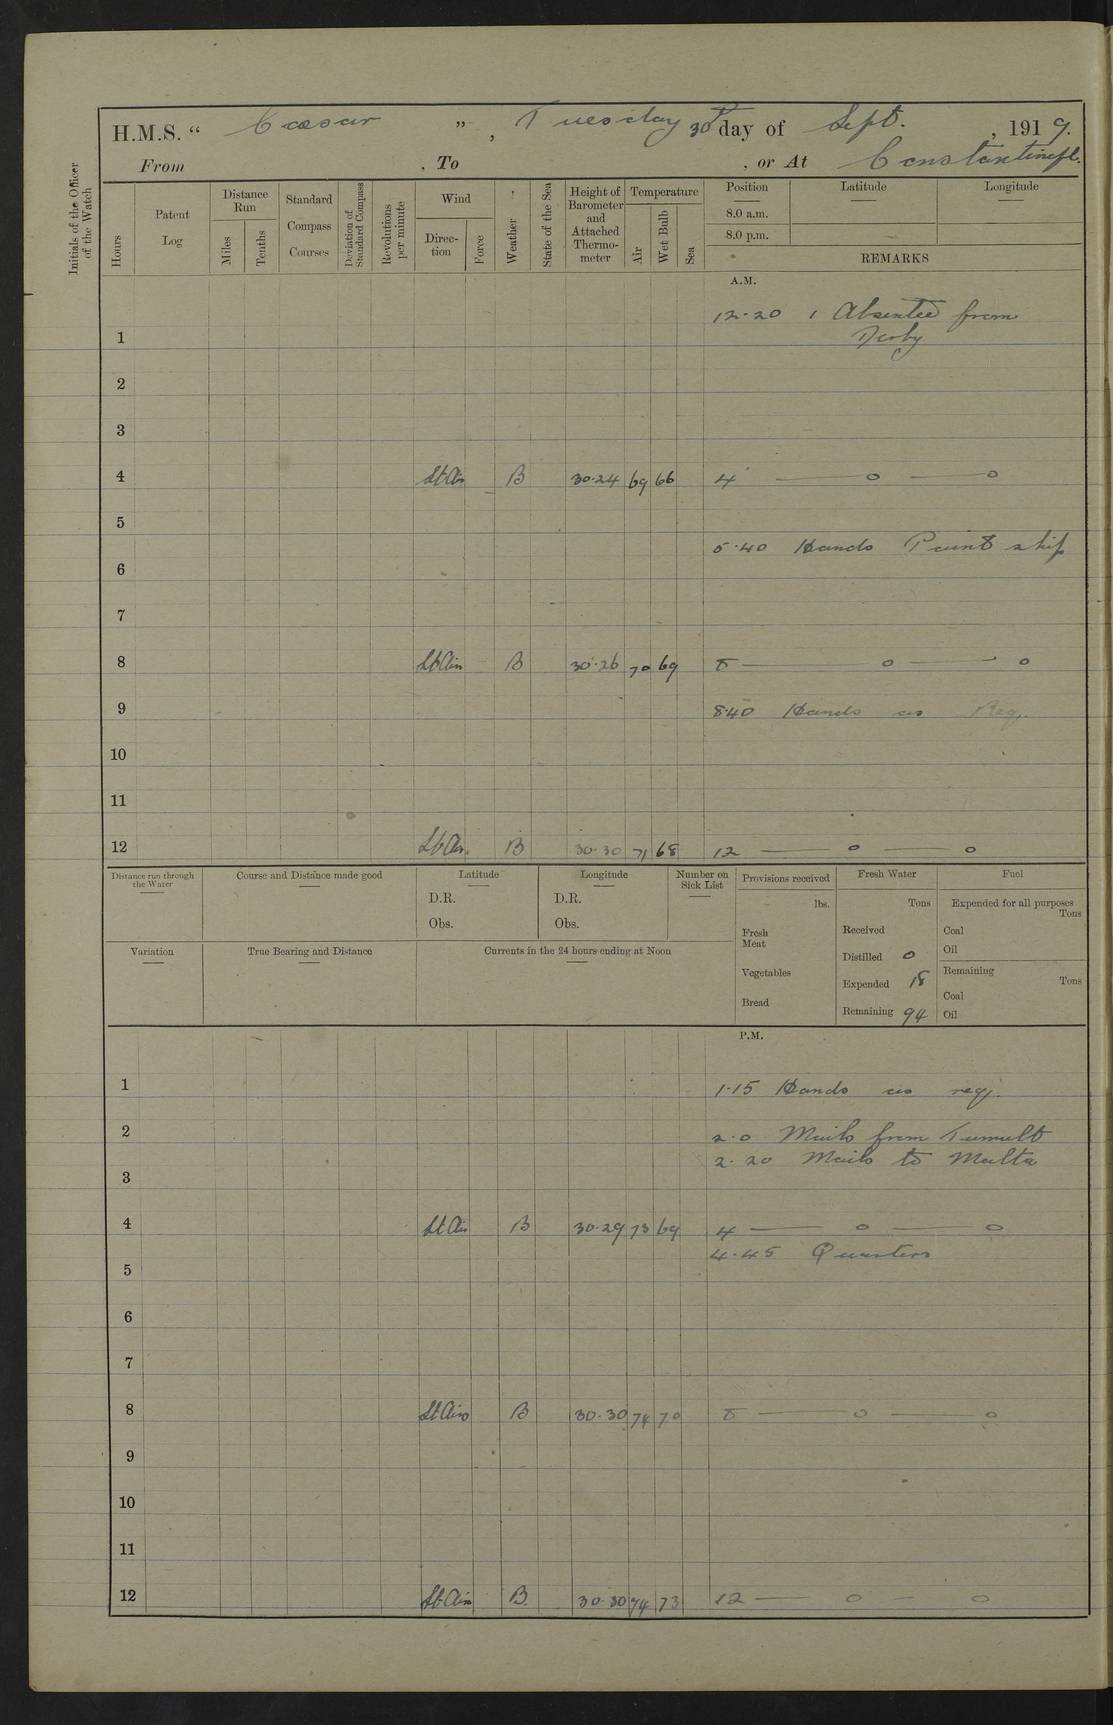 H.M.S. “ Cæsar ” , Tuesday 30th day of Sept. , 1919.
From , To , or At Constantinople.
Initials of the Officer of the Watch
Hours
Patent Log
Distance Run
Miles
Tenths
Standard Compass Courses
Deviation of Standard Compass
Revolutions per minute
Wind
Direc-tion
Force
Weather
State of the Sea
Height of Barometer and Attached Thermo-meter
Temperature
Air
Wet Bulb
Sea
Position Latitude Longitude
8.0 a.m.
8.0 p.m.
REMARKS
A.M.
12.20 1 Absentee from
1 Derby
2
3
4 Lt Air B 30.24 69 66 4 — o — o
5
5.40 Hands Paint ship
6
7
8 Lt Air B 30.26 70 69 8 — o — o
9 8.40 Hands as Req.
10
11
12 Lt Air B 30.30 71 68 12 — o — o
Distance run through the Water
Course and Distance made good
Latitude
D.R.
Obs.
Longitude
D.R.
Obs.
Number on Sick List
Provisions received
lbs.
Fresh Meat
Vegetables
Bread
Fresh Water
Tons
Received
Distilled 0
Expended 18
Remaining 94
Fuel
Expended for all purposes
Tons
Coal
Oil
Remaining
Tons
Coal
Oil
Variation
True Bearing and Distance
Currents in the 24 hours ending at Noon
P.M.
1 1.15 Hands as req.
2 2.0 Mails from Tumult
2.20 Mails to Malta
3
4 Lt Air B 30.29 73 69 4 — o — o
4.45 Quarters
5
6
7
8 Lt Airs B 30.30 74 70 8 — o — o
9
10
11
12 Lt Air B. 30.30 74 73 12 — o — o